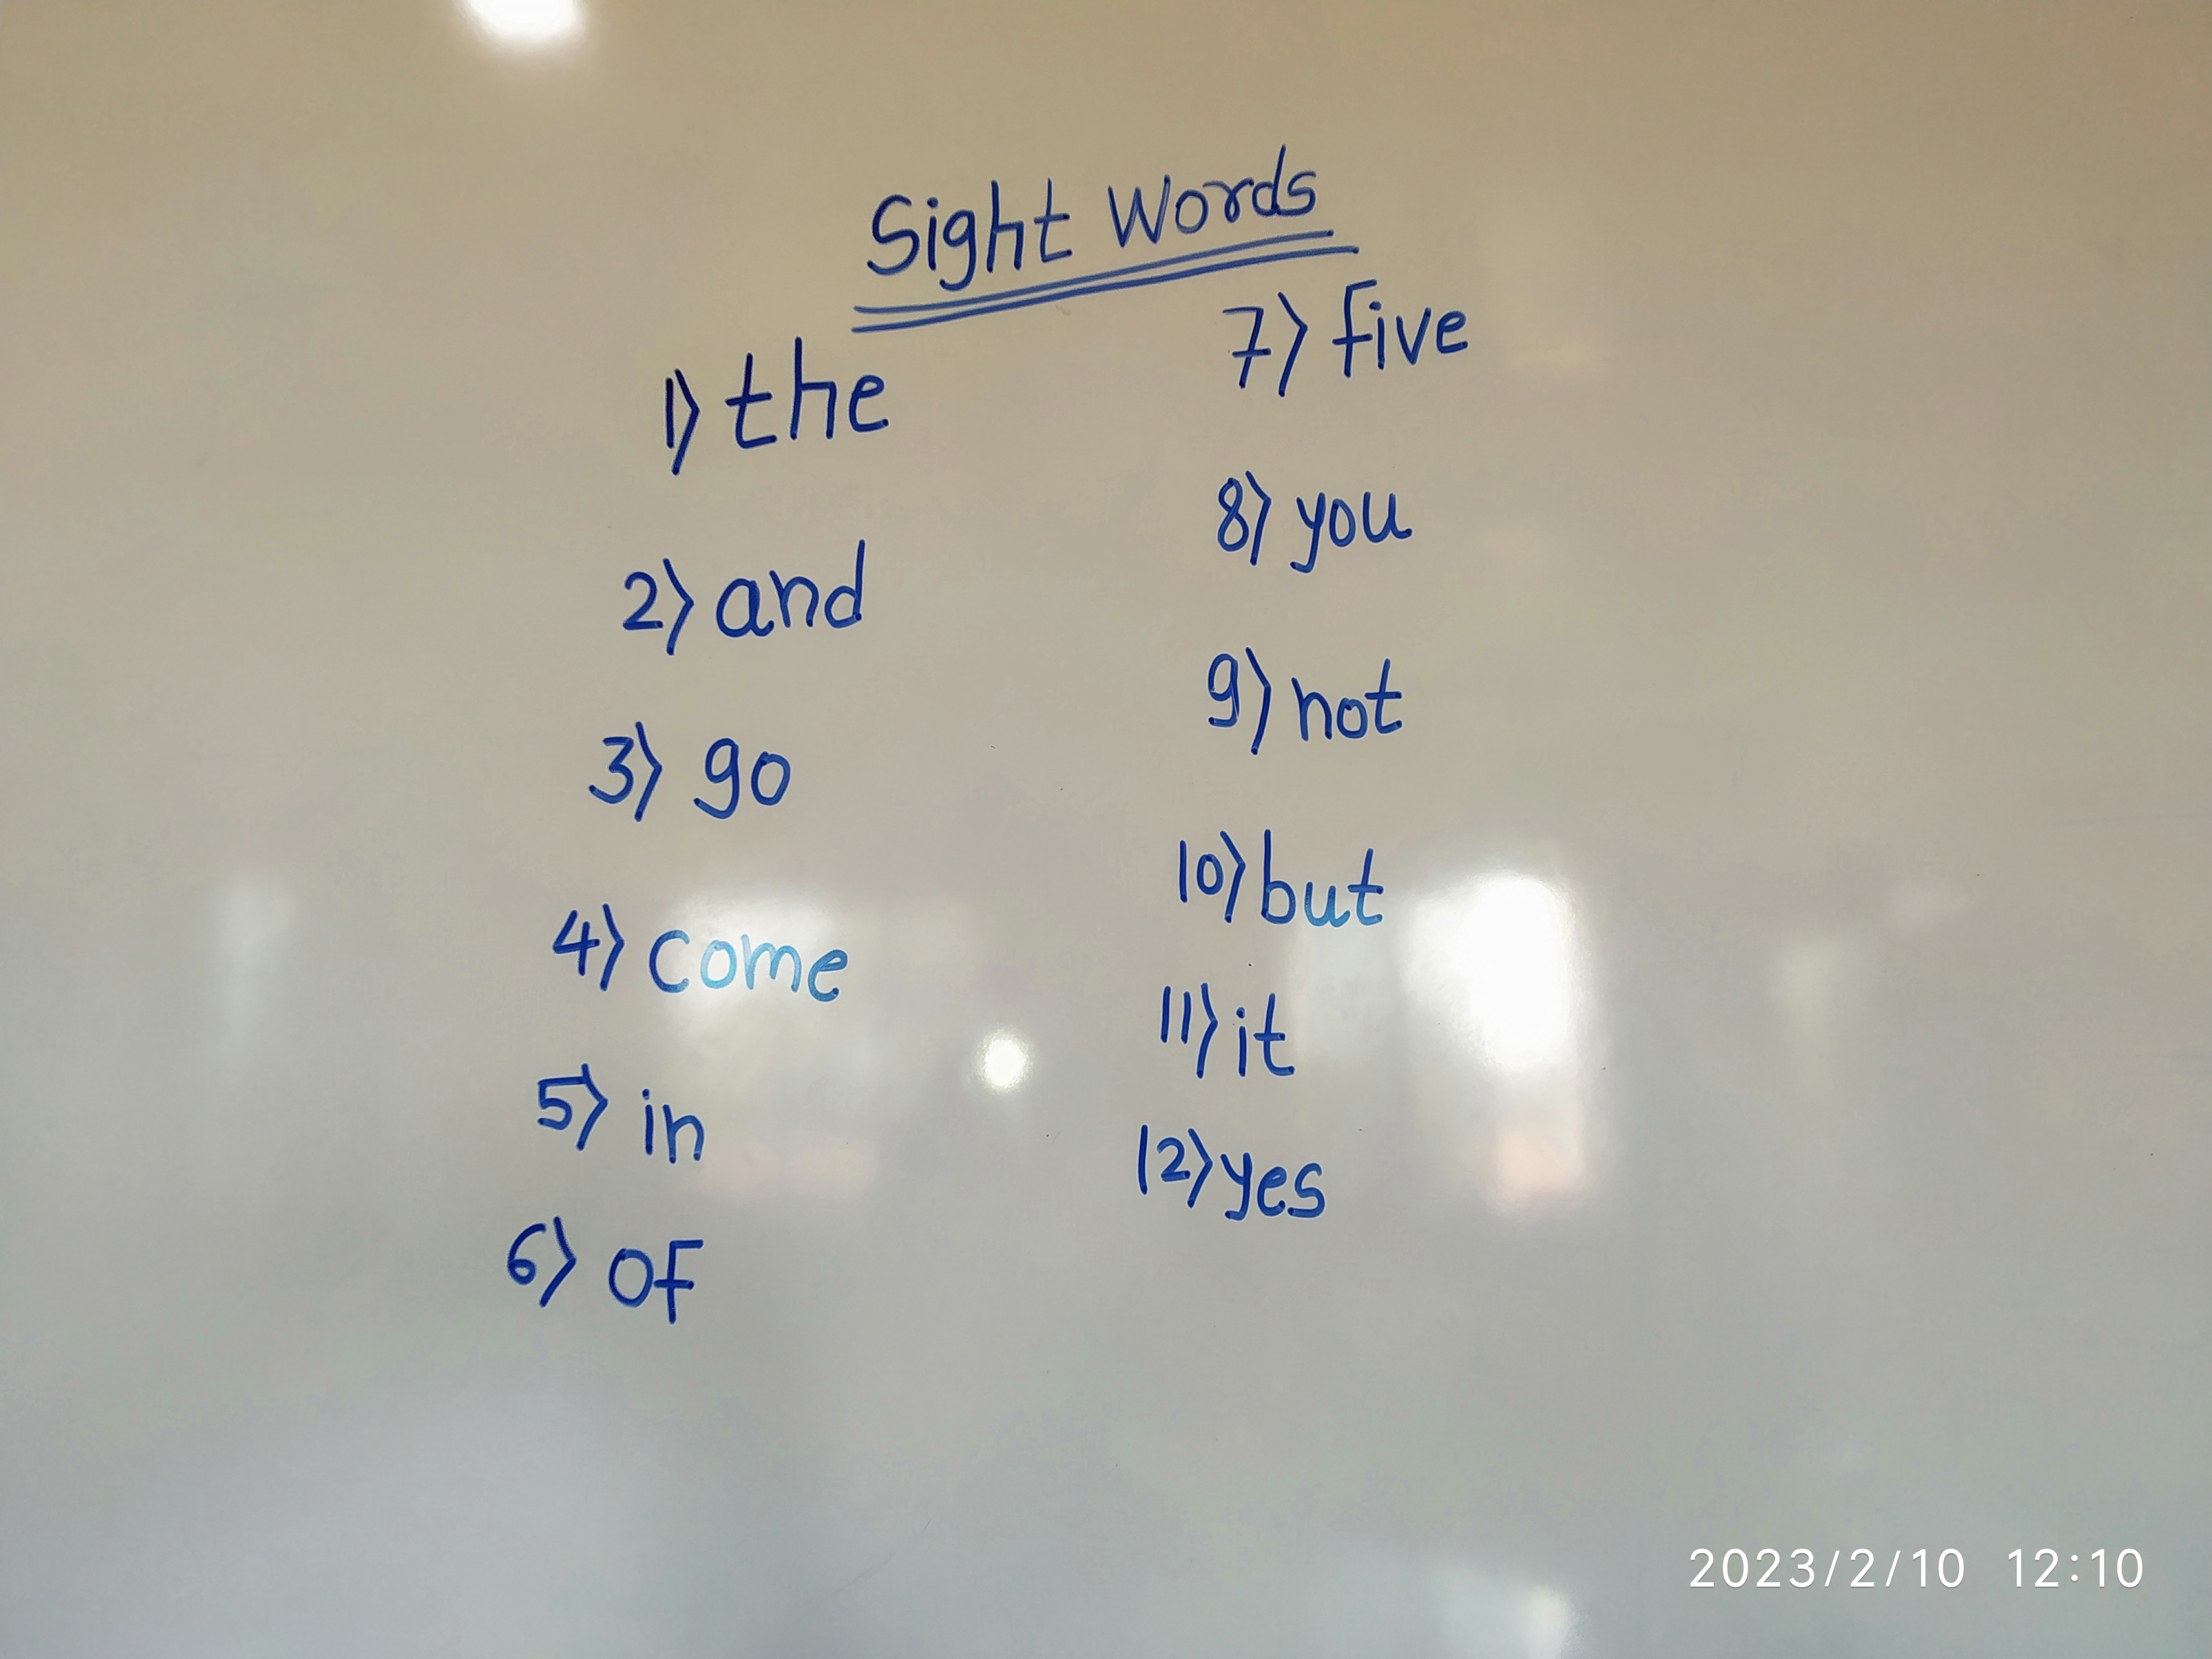 Sight Words
1) the
2) and
3) go
4) come
5) in
6) of
7) five
8) you
9) not
10) but
11) it
12) yes
2023/2/10 12:10